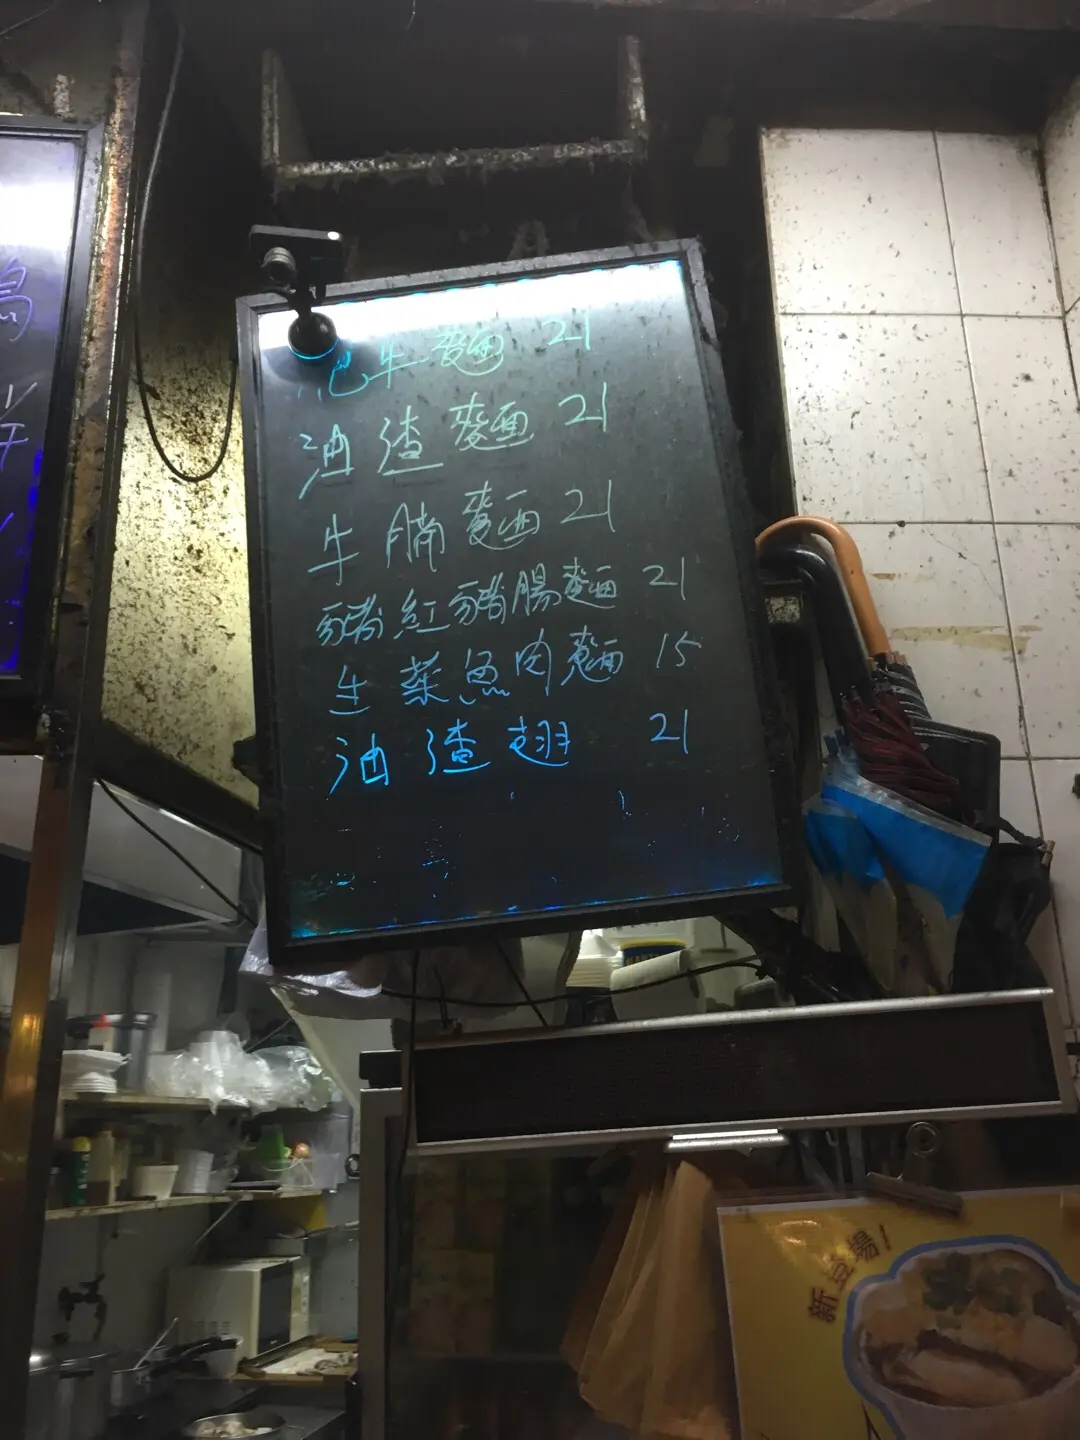 牛麵 21
油渣麵 21
牛腩麵 21
豬紅豬腸麵 21
生菜魚肉麵 15
油渣翅 21
新登場!